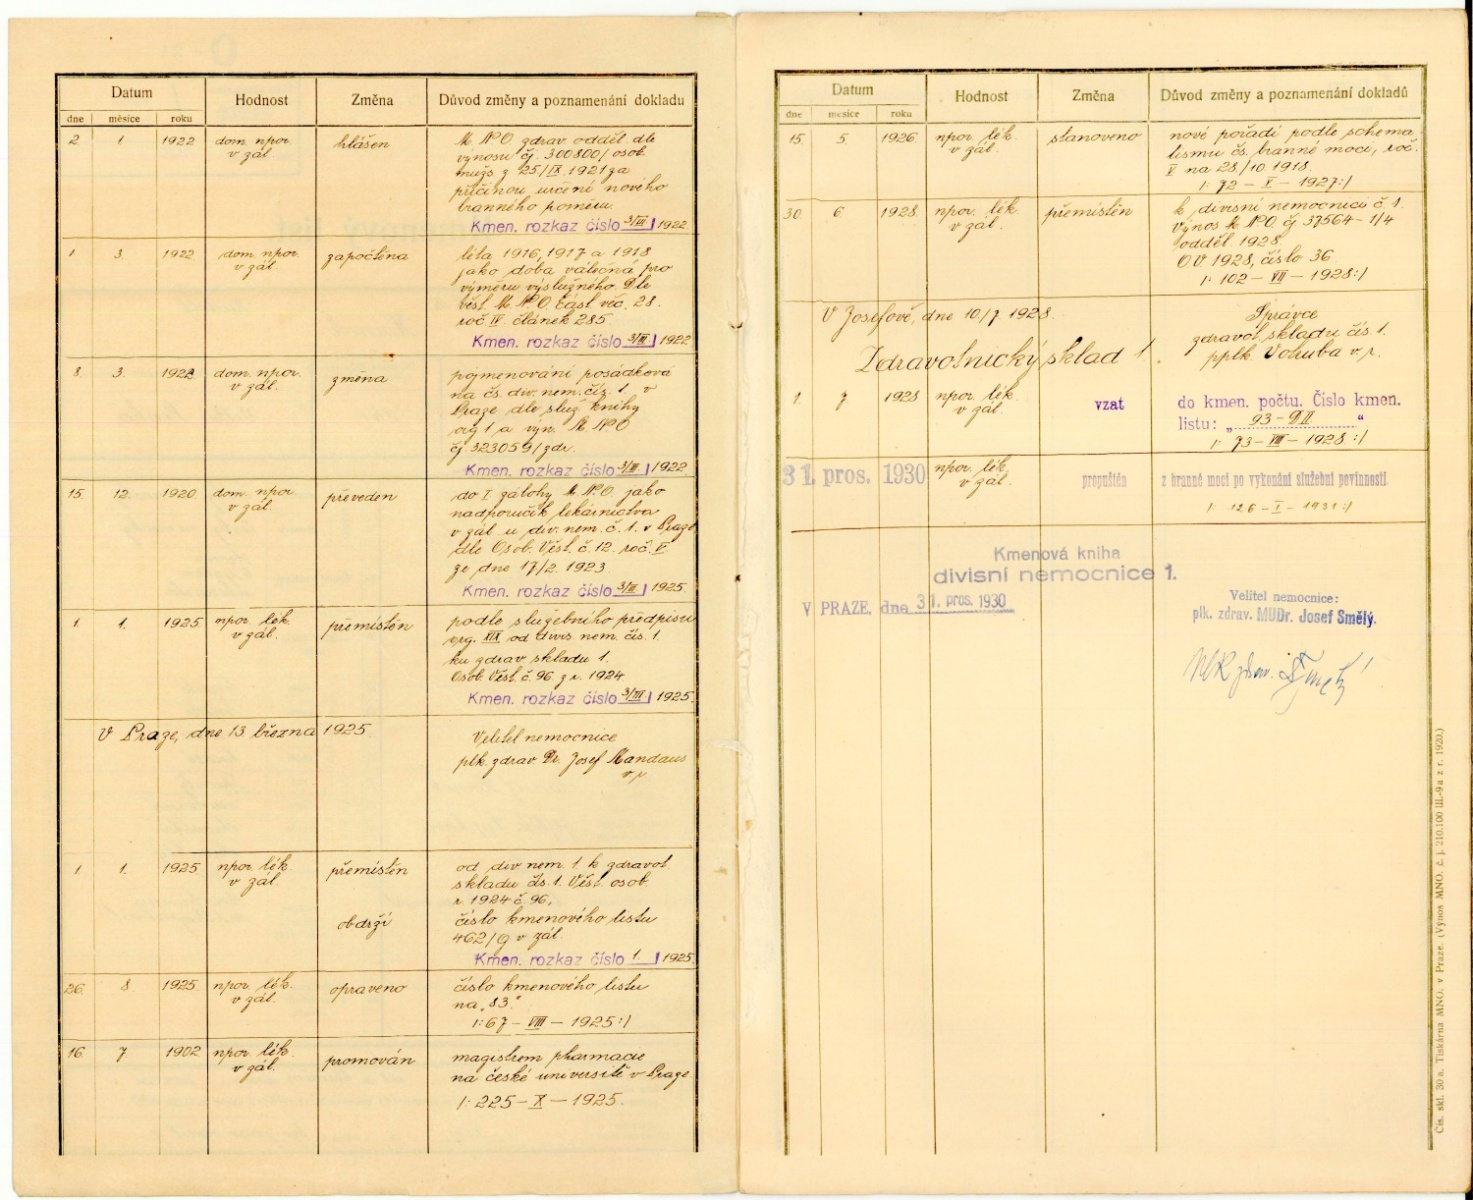 Datum
Hodnost
Změna
Důvod změny a poznamenání dokladu
dne
měsíce
roku
2. 1. 1922 dom. npor. hlášen M.N.O. zdrav. odděl. dle
v zál. výnosu čj. 300800/osob.
mužs z 25/IX. 1921 za
příčinou určení nového
branného poměru.
Kmen. rozkaz číslo 3/III 1922
1 3. 1922 dom. npor. započtěna léta 1916, 1917 a 1918
v zál. jako doba válečná pro
výměru výslužného. Dle
Věst. M.N.O. část věc. 28.
roč. IV. článek 285.
Kmen. rozkaz číslo 3/III 1922
8. 3. 1922 dom. npor. změna pojmenování posádková
v zál. na čs. div. nem. čís. 1. v
Praze dle služ. knihy
org 1 a výn. M.N.O
čj. 323059/zdr.
Kmen. rozkaz číslo 3/III. 1922
15. 12. 1920 dom. npor. převeden do I. zálohy M.N.O. jako
v zál. nadporučík lékárnictva
v zál. u div. nem. č. 1. v Praze
dle Osob. Věst. č. 12. roč. V.
ze dne 17/2. 1923.
Kmen. rozkaz číslo 3/III 1925.
1. 1. 1925 npor. lék. přemístěn podle služebního předpisu
v zál. org. XIX od divis. nem. čís. 1.
ku zdrav. skladu 1.
Osob. Věst. č. 96 z r. 1924
Kmen. rozkaz číslo 3/III 1925.
V Praze, dne 13 března 1925. Velitel nemocnice
plk. zdrav. Dr. Josef Mandaus
v.r.
1. 1. 1925 npor. lék. přemístěn od div. nem. 1. k zdravot.
v zál. skladu čís. 1. Věst. osob.
r. 1924 č. 96,
obdrží číslo kmenového listu
462/9 v zál.
Kmen. rozkaz číslo 1. 1925
26. 8. 1925. npor. lék. opraveno číslo kmenového listu
v zál. na „83."
/: 67 – VIII – 1925 :/
16. 7 1902 npor. lék. promován magistrem pharmacie
v zál. na české universitě v Praze
/: 225 – X – 1925.
Datum
Hodnost
Změna
Důvod změny a poznamenání dokladů
dne
měsíce
roku
15. 5. 1926 npor. lék. stanoveno nové pořadí podle schema
v zál. tismu čs. branné moci, roč.
V na 28/10. 1918.
/: 72 – V – 1927 :/
30. 6. 1928 npor. lék. přemístěn k divisní nemocnici č. 1.
v zál. Výnos M.N.O. čj. 37564 – 1/4
odděl. 1928.
O.V. 1928, číslo 36
/: 102 – VII – 1928 :/
V Josefově, dne 10/7. 1928. Správce
zdravot. skladu čís 1.
Zdravotnický sklad 1. pplk. Vohuba v. r.
1 7 1928 npor. lék. vzat do kmen. počtu. Číslo kmen.
v zál. listu: „ 93 – DII "
/: 73 – VIII – 1928 :/
31. pros. 1930 npor. lék. propuštěn z branné moci po vykonání služební povinnosti.
v zál. /: 126 – I – 1931 :/
Kmenová kniha
divisní nemocnice 1.
V PRAZE, dne 31. pros. 1930
Velitel nemocnice:
plk. zdrav. MUDr. Josef Smělý.
Čís. skl. 30 a. Tiskárna MNO. v Praze. (Výnos MNO. č. j. 210.100 III.-9 a z r. 1920.)